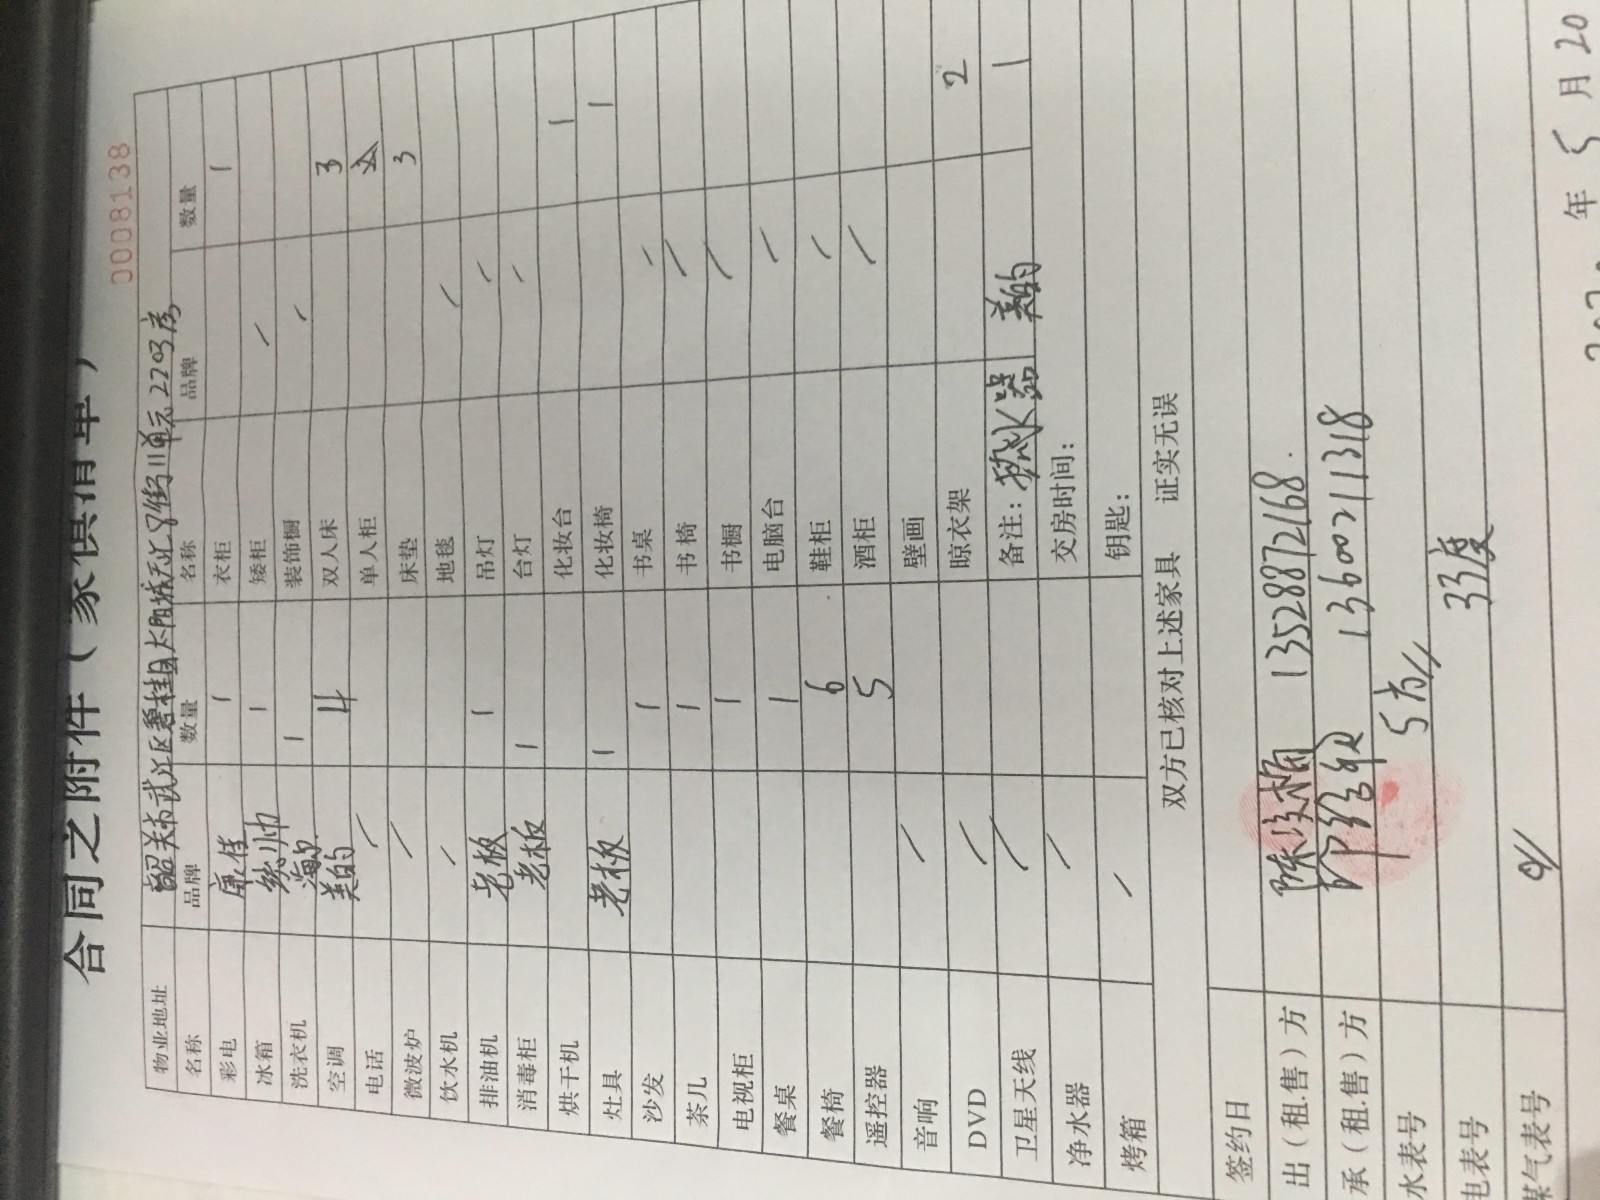 合同之附件（家俱清单）
0008138
物业地址 韶关市武江区碧桂园太阳城 8街11单元2203房
名称 品牌 数量 名称 品牌 数量
彩电 康佳 1 衣柜 1
冰箱 1 矮柜 /
洗衣机 海尔 1 装饰橱 /
空调 美的 4 双人床 3
电话 / 单人柜
微波炉 / 床垫 3
饮水机 / 地毯 /
排油机 老板 1 吊灯 /
消毒柜 老板 1 台灯 /
烘干机 化妆台 1
灶具 老板 1 化妆椅 1
沙发 1 书桌 /
茶几 1 书椅 /
电视柜 1 书橱 /
餐桌 1 电脑台 /
餐椅 6 鞋柜 /
遥控器 5 酒柜 /
音响 / 壁画
DVD / 晾衣架 2
卫星天线 / 备注：热水器 美的 1
净水器 / 交房时间：
烤箱 / 钥匙：
双方已核对上述家具 证实无误
签约日
出（租.售）方 13528872168.
承（租.售）方 13600211318
水表号 5方//
电表号 33度
煤气表号 0//
年 5 月 20